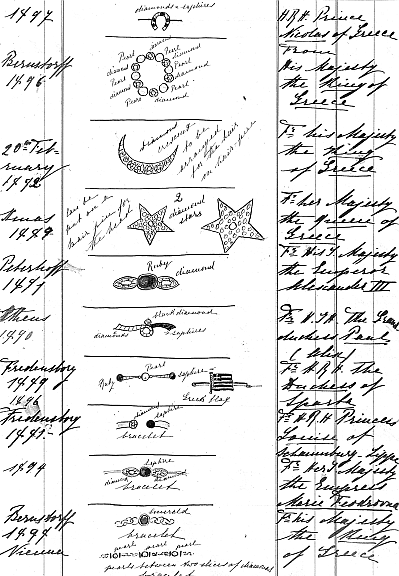 1897
diamonds & sapphires
H.R.H. Prince
Nicolas of Greece
Bernstorff
1896
Pearl diamond Pearl
diamond
Pearl
diamond
Pearl
diamond
Pearl
diamond
From
His Majesty
the King of
Greece
20th Feb-
ruary
1892
Diamond crescent
to be
arranged
to the hair
on hair-pins
Fr his Majesty
the King
of Greece
Xmas
1889
can be
put on a
hair pin for
the head
2
diamond
stars
Fr her Majesty
the Queen of
Greece
Peterhoff
1891
Ruby
diamond
Fr His I. Majesty
the Emperor
Alexander III
Athens
1890
black diamond
diamonds
sapphires
Fr H.I.H. The Grand
duchess Paul
Fredensborg
1889
Ruby
Pearl
saphire
Greek flag
Fr H.R.H. the
Duchess of
Sparta
1896
Fredensborg
diamond
saphire
bracelet
Fr H.R.H Princess
Louise of
Schaumburg-Lippe
1894
saphire
diamond
diamond
bracelet
Fr Her I. Majesty
the Empress
Marie Feodrovna
Bernstorff
1897
emerald
bracelet
Fr his Majesty
the King
of Greece
Vienna
pearl pearl pearl
pearls between two slices of diamond
bracelet